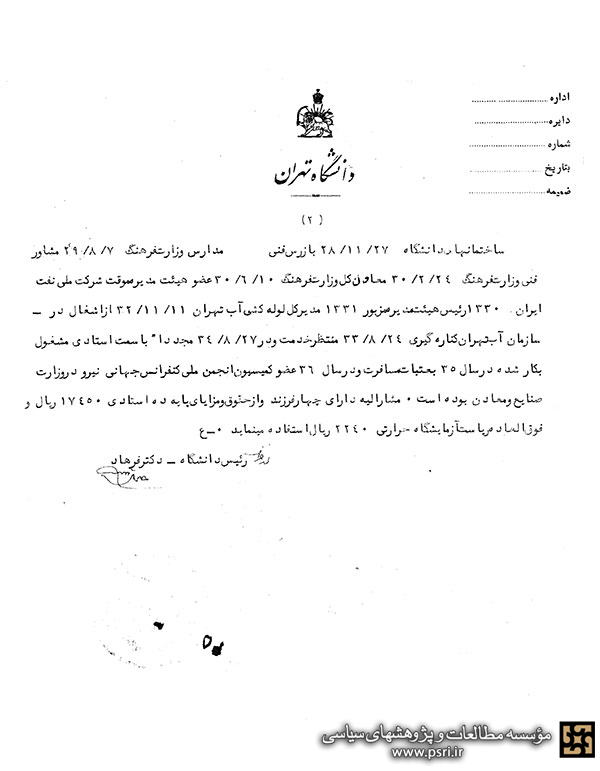 اداره ......................
دایره......................
شماره ......................
بتاریخ ......................
ضمیمه ......................
دانشگاه تهران
(۲)
ساختمانهای دانشگاه ۲۸/۱۱/۲۷ بازرس فنی مدارس وزارت فرهنگ ۲۹/۸/۷ مشاور
فنی وزارت فرهنگ ۳۰/۲/۲۴ معاون کل وزارت فرهنگ ۳۰/۶/۱۰ عضو هیئت مدیره موقت شرکت ملی نفت
ایران ۱۳۳۰ رئیس هیئت مدیره مزبور ۱۳۳۱ مدیر کل لوله کشی آب تهران ۳۲/۱۱/۱۱ از اشغال در –
سازمان آب تهران کناره گیری ۳۳/۸/۲۴ منتظر خدمت و در ۳۴/۸/۲۷ مجددا" با سمت استادی مشغول
بکار شده در سال ۳۵ به عتبات مسافرت و در سال ۳۶ عضو کمیسیون انجمن ملی کنفرانس جهانی نیرو در وزارت
صنایع و معادن بوده است ۰ مشارالیه دارای چهار فرزند و از حقوق و مزایای پایه ده استادی ۱۷۴۵۰ ریال و
فوق العاده ریاست آزمایشگاه حرارتی ۲۲۴۰ ریال استفاده مینماید ۰–ع
رئیس دانشگاه – دکتر فرهاد
مؤسسه مطالعات و پژوهشهای سیاسی
www.psri.ir